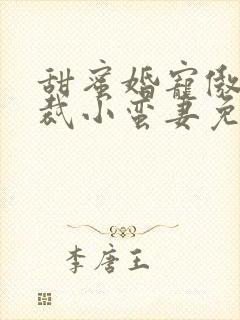 甜蜜婚寵傲
裁小蛮妻免
李唐王